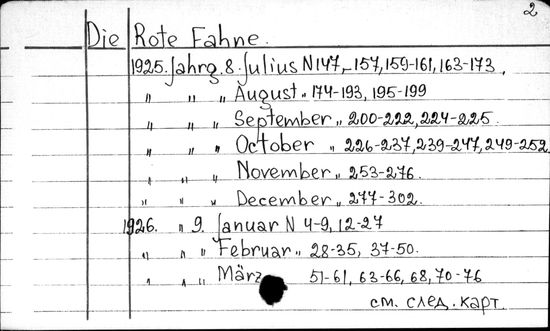 2
Die Rote Fahne.
1925. Jahrg. 8. Julius N 147-157, 159-161, 163-173,
" " " August " 174-193, 195-199
" " " September " 200-222, 224-225.
" " " October " 226-237, 239-247, 249-252
" " " November " 253-276.
" " " December " 277-302.
1926. " 9. Januar N 4-9, 12-27
" " " Februar " 28-35, 37-50.
" " " März 51-61, 63-66, 68, 70-76
см. след. карт.